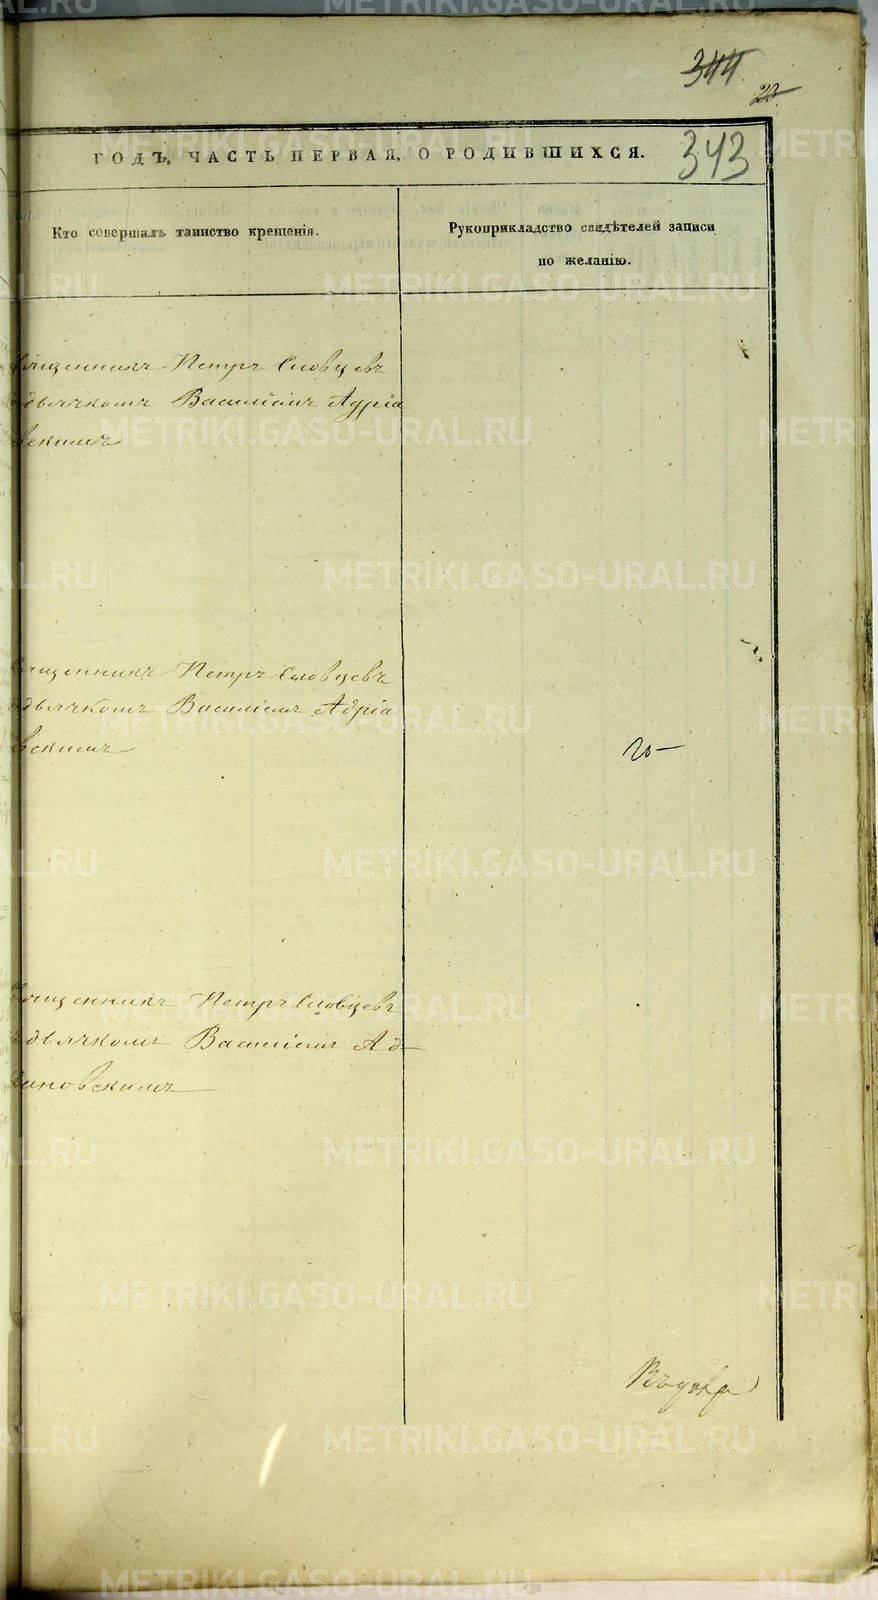 344
23.
343
ГОДЪ, ЧАСТЬ ПЕРВАЯ, О РОДИВШИХСЯ.
Кто совершалъ таинство крещенія.
Рукоприкладство свидѣтелей записи
по желанію.
священникъ Петръ Словцевъ
дьячкомъ Василіемъ Адріа
вскимъ
священникъ Петръ Словцевъ
дьячкомъ Василіемъ Адріа
вскимъ
священникъ Петръ Словцевъ
дьячкомъ Василіемъ Ад
ріановскимъ
METRIKI.GASO-URAL.RU